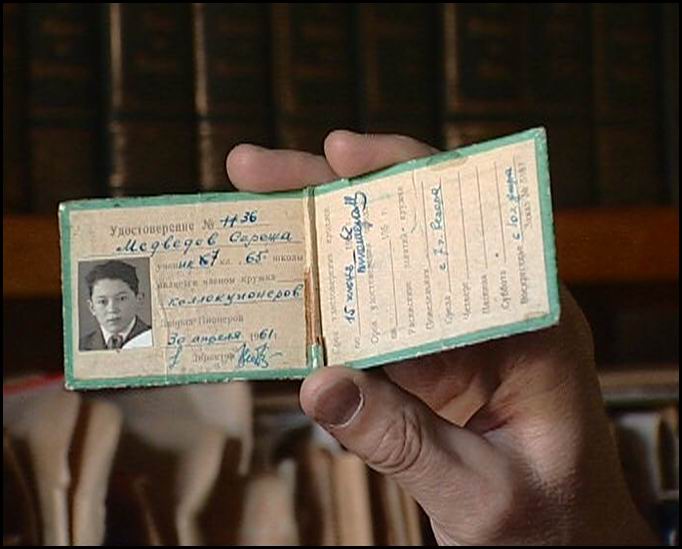 Удостоверение № 1136
Медведов Сережа
ученик 7 кл. 65 школы
является членом кружка
коллекционеров
Дворца Пионеров
30 апреля 1961 г.
Директор
Срок удостоверения продлен
по 15 июня
Срок удостоверения
195 г.
Расписание занятий кружка
Понедельник
Среда с 7 ч.
Четверг
Пятница
Суббота
Воскресенье с 10 ч. утра
Заказ №